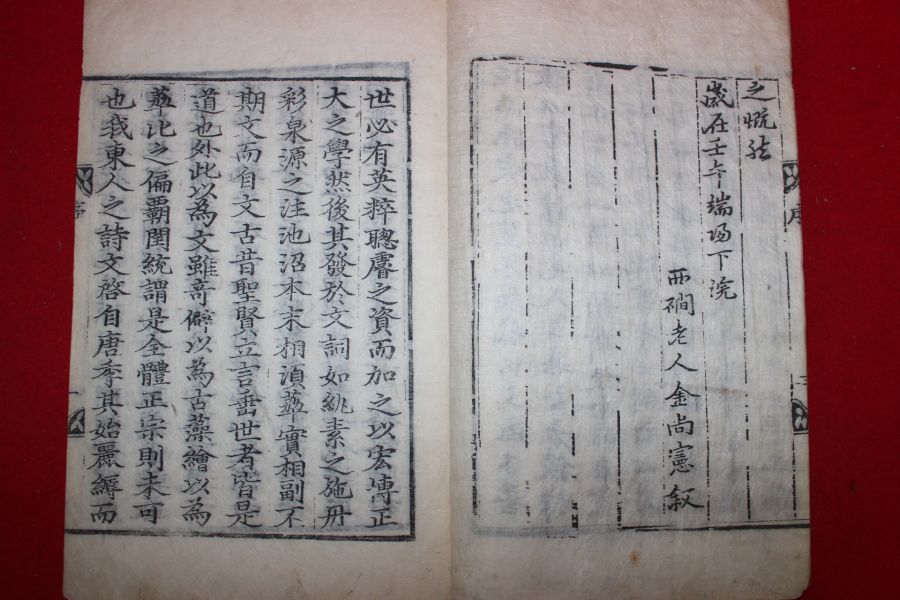 之慨然
歲在壬午端陽下浣
西磵老人金尙憲叙
序
世必有英粹聰睿之資而加之以宏博正
大之學然後其發於文詞如絺素之施丹
彩泉源之注池沼本末相須華實相副不
期文而自文古昔聖賢立言垂世者皆是
道也外此以為文雖奇僻以為古藻繪以為
華比之偏覇閏統謂是全體正宗則未可
也我東人之詩文啓自唐季其始麗縟而
序